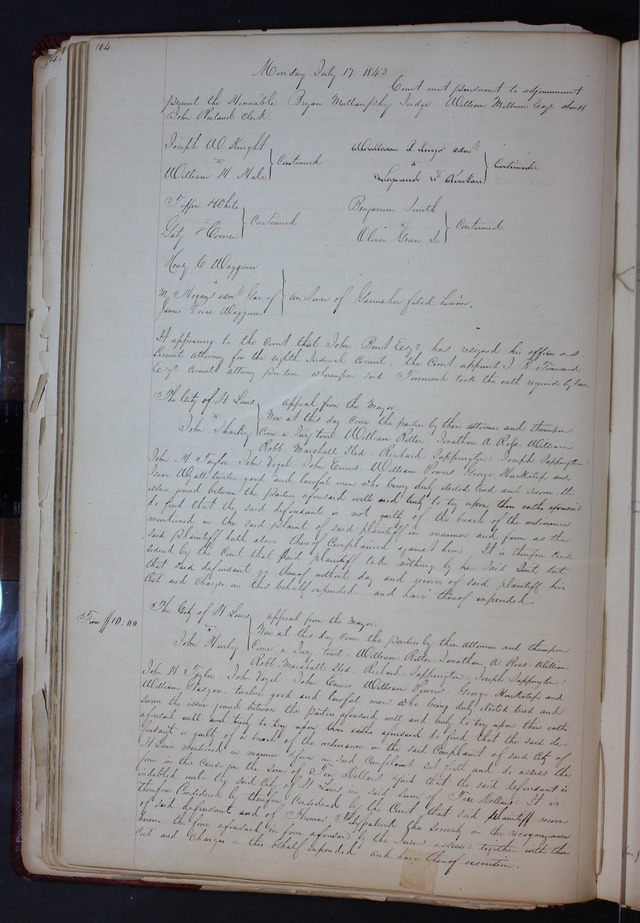 104.
Monday July 17. 1843
Court met pursuant to adjournment
present the Honorable Bryan Mullanphy Judge. William Milburn Esqr. Sheriff
John Ruland Clerk.
Joseph W. Knight
vs
William H. Hale } Continued
William adms
vs
} Continued
White
vs
} Continued
Benjamin Smith
vs
Oliver Jr } Continued
Henry C. Waggoner
vs
Hogan's adms of
James Waggoner } answer of Garnishee filed herein.
It appearing to the Court that John Bent Esqr. has resigned his office as
Circuit attorney for the eighth Judicial Circuit. the Court appoint J. B. Townsend
Esqr. Circuit attorney pro tem whereupon said Townsend took the oath required by law.
The City of St Louis
vs
John Sharkey } appeal from the Mayor
Now at this day come the parties by their attornies and thereupon
Come a Jury towit. William Ritter. Jonathan A Ross. William
Robb. Marshall Richard Sappington. Joseph Sappington.
John H. Taylor. John Vogel. John William Powers. George and
twelve good and lawful men who being duly elected tried and sworn the
issue joined between the parties aforesaid well and truly to try upon their oaths aforesaid
do find that the said defendant is not guilty of the breach of the ordinance
mentioned in the said Complaint of said plaintiff in manner and form as the
said Plaintiff hath above thereof Complained against him. It is therefore Con-
sidered by the Court that said plaintiff take nothing by his said Suit but
that said defendant go thereof without day and recover of said plaintiff his
Cost and Charges in this behalf expended and have thereof
Fine $10.00
The City of St Louis
vs
John } appeal from the Mayor.
Now at this day come the parties by their attornies and thereupon
Come a Jury towit. William Ritter. Jonathan A Ross. William
Robb. Marshall Richard Sappington. Joseph Sappington.
John H Taylor. John Vogel. John William Powers. George and
William Glasgow. twelve good and lawful men who being duly elected tried and
sworn the issue joined between the parties aforesaid well and truly to try upon their oaths
aforesaid do find that the said de-
fendant is guilty of a breach of the ordinance in the said Complaint of said City of
St Louis mentioned in manner & form in said Complaint set forth and do assess the
fine in the cause in the Sum of Dollars and that the said defendant is
indebted unto the said City of St Louis in said Sum of Dollars. It is
therefore Considered by therefore Considered by the Court that said plaintiff recover
of said defendant and of Thomas Fitzpatrick the Security in the recognizance
herein the fine aforesaid in form aforesaid by the Jurors assessed together with their
Cost and Charges in this behalf expended and have thereof execution.